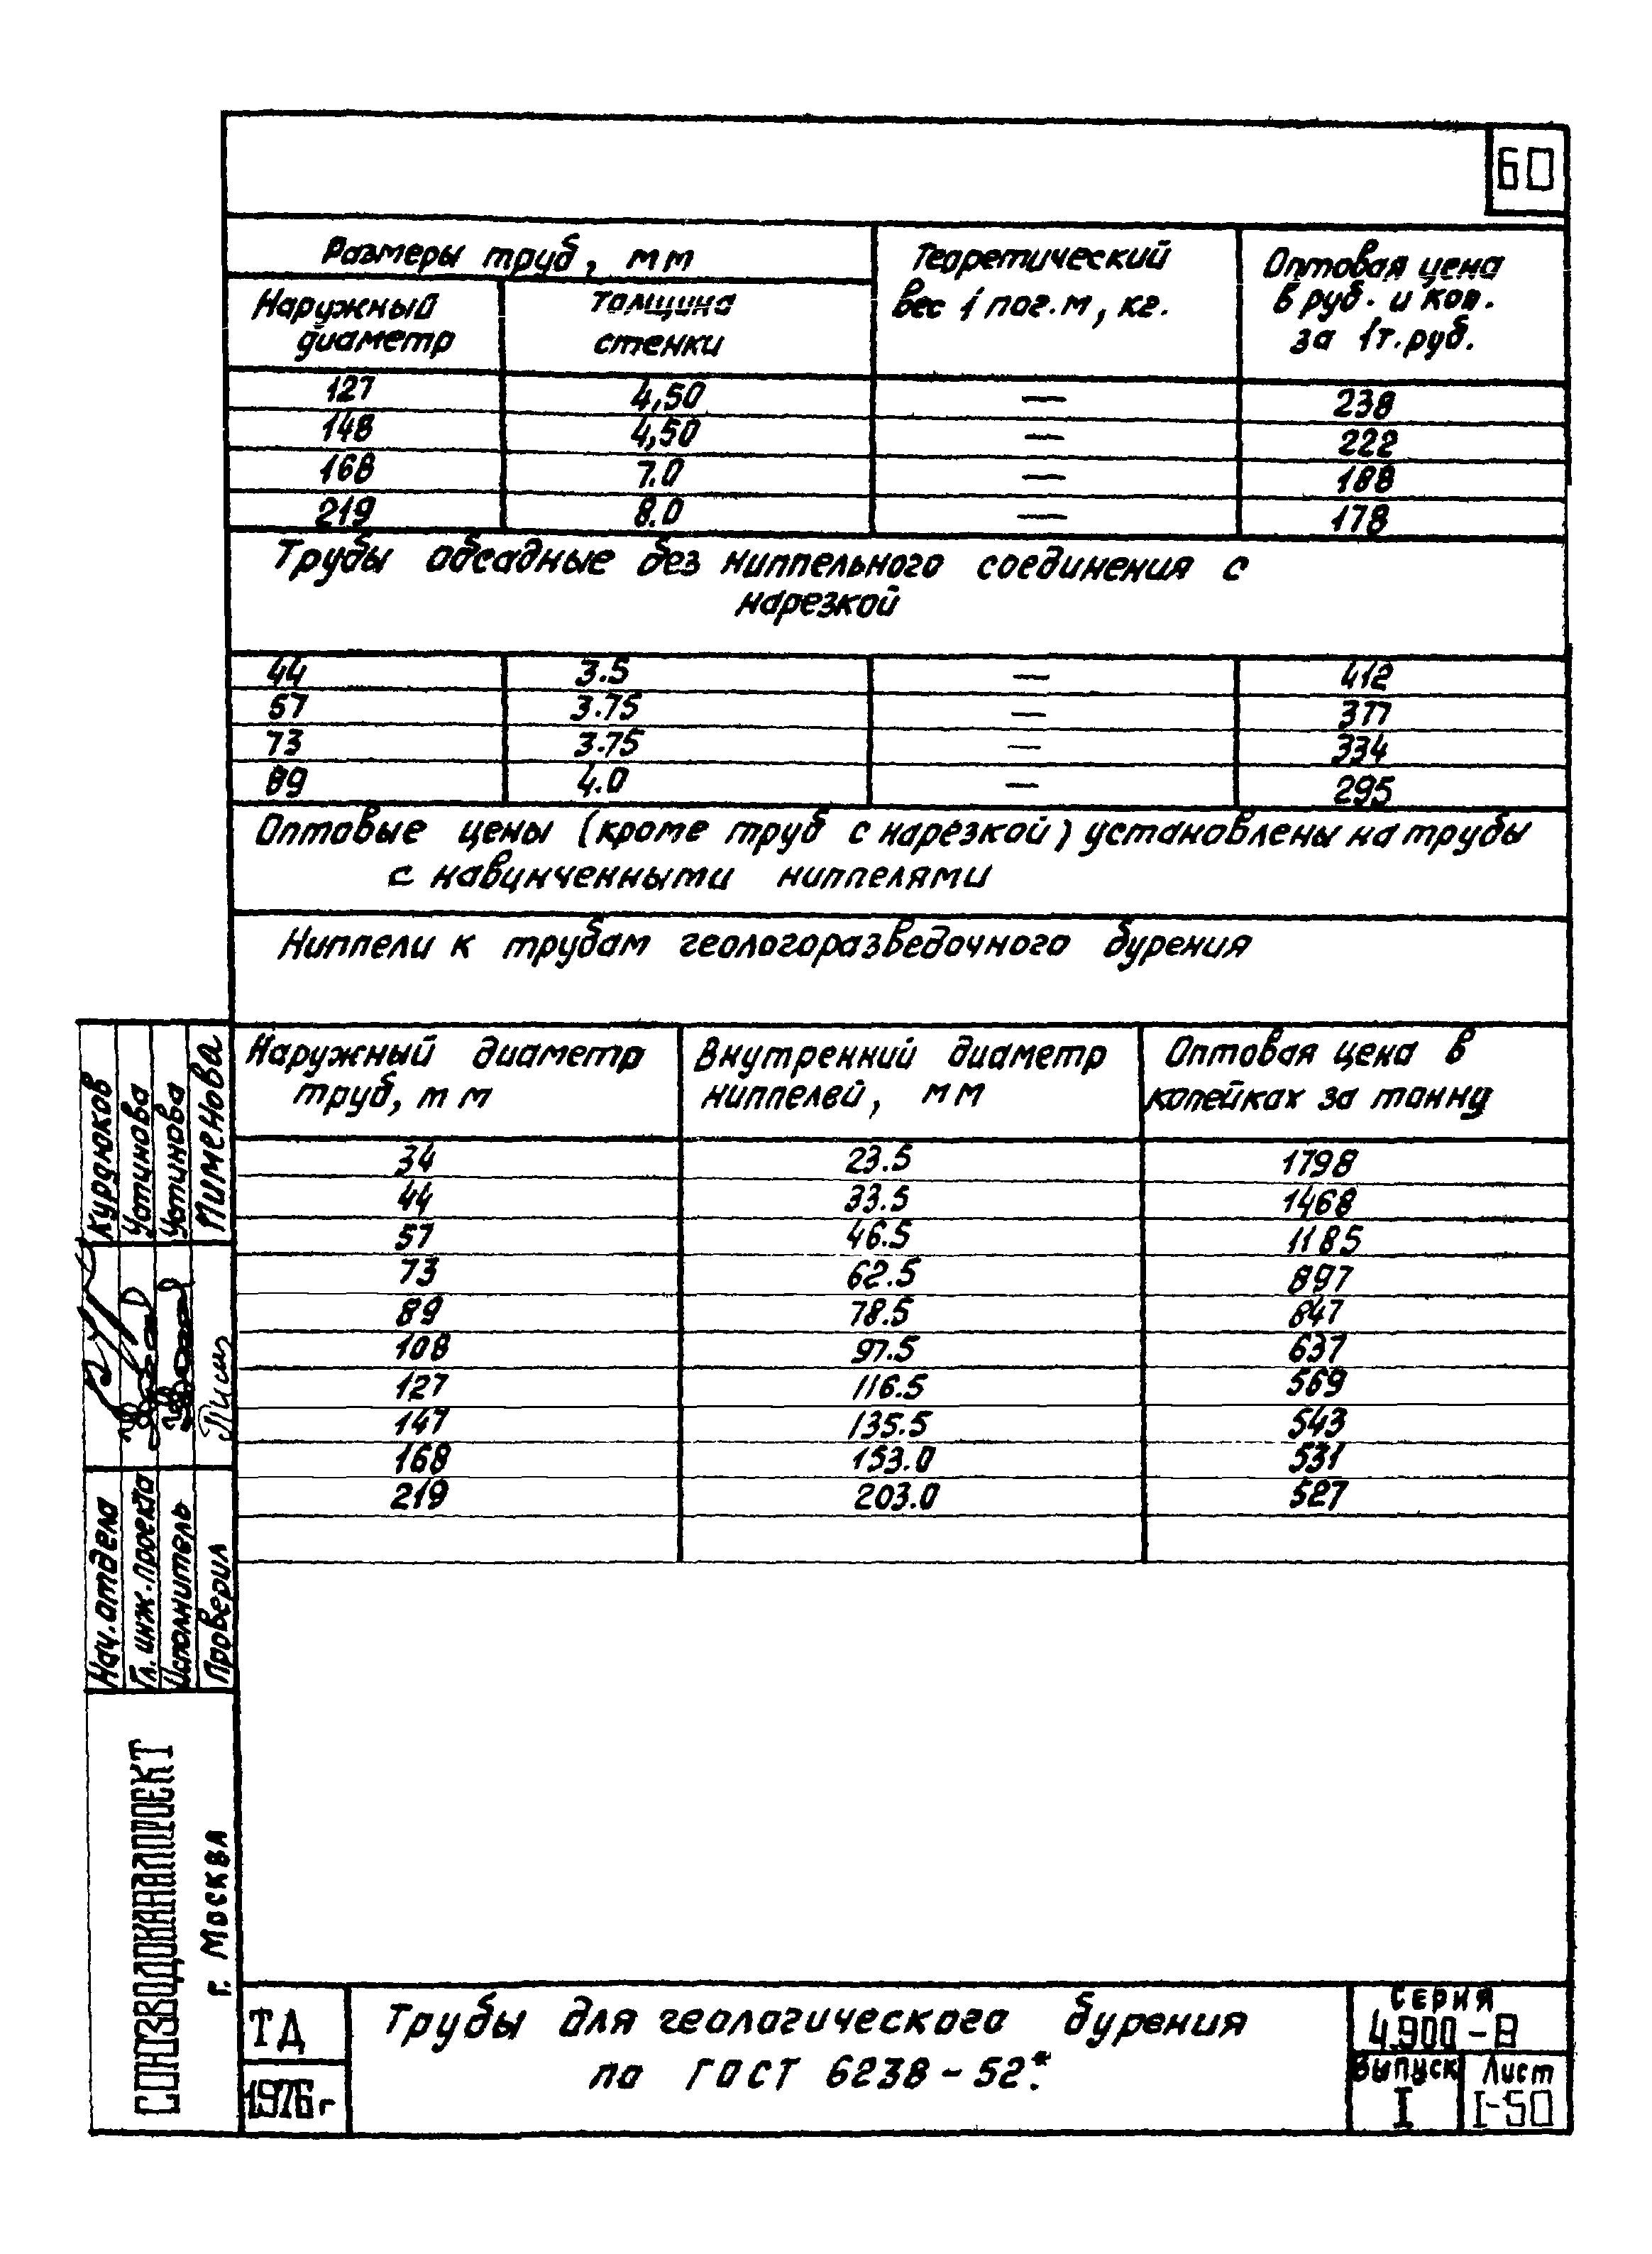 60
Размеры труб, мм
Теоретический
вес 1 пог.м, кг.
Оптовая цена
в руб. и коп.
за 1т. руб.
Наружный
диаметр
толщина
стенки
127 4,50 — 238
148 4,50 — 222
168 7.0 — 188
219 8.0 — 178
Трубы обсадные без ниппельного соединения с
нарезкой
44 3.5 — 412
57 3.75 — 377
73 3.75 — 334
89 4.0 — 295
Оптовые цены (кроме труб с нарезкой) установлены на трубы
с навинченными ниппелями
Ниппели к трубам геологоразведочного бурения
Наружный диаметр
труб, мм
Внутренний диаметр
ниппелей, мм
Оптовая цена в
копейках за тонну
34 23.5 1798
44 33.5 1468
57 46.5 1185
73 62.5 897
89 78.5 847
108 97.5 637
127 116.5 569
147 135.5 543
168 153.0 531
219 203.0 527
Нач. отдела Курдюков
Гл. инж. проекта Устинова
Исполнитель Устинова
Проверил Пименова
СОЮЗВОДОКАНАЛПРОЕКТ
г. Москва
ТД
1976г
Трубы для геологического бурения
по ГОСТ 6238-52*.
Серия
4.900-В
Выпуск
I
Лист
I-50